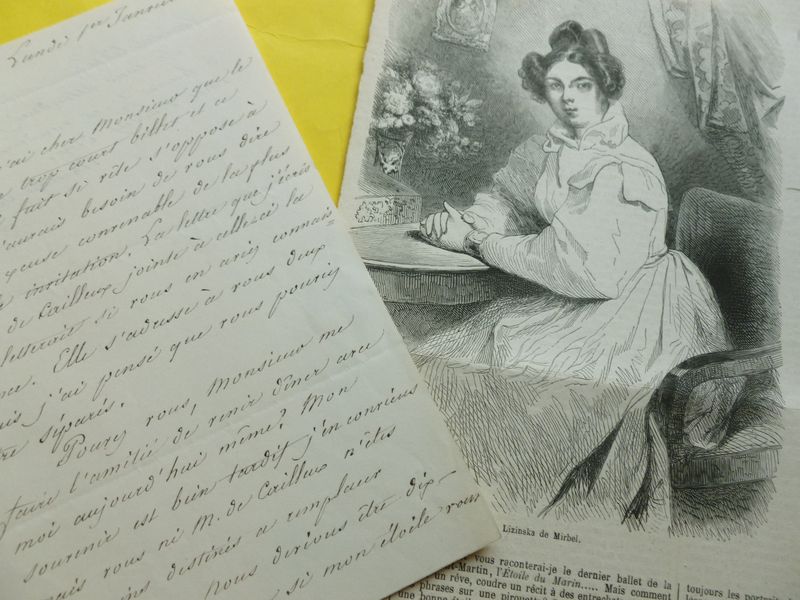 Lundi 1er Janvier
j'ai cher Monsieur que le
trop court billet et ce
fait si vite s'oppose à
j'aurais besoin de vous dire
excuse convenable de la plus
invitation. La lettre que j'écris
de Cailleux jointe à celle-ci la
lettrerait si vous en aviez connais=
nce. Elle s'adresse à vous deux
mais j'ai pensé que vous pouviez
être séparés.
Pouvez vous, Monsieur me
faire l'amitié de venir dîner avec
moi aujourd'hui même? Mon
souvenir est bien tardif j'en conviens
mais vous ni M. de Cailleux n'êtes
destinés a remplacer
Nous devions être dix
si mon étoile vous
Lizinska de Mirbel.
vous raconterai-je le dernier ballet de la
t-Martin, l'Étoile du Marin..... Mais comment
un rêve, coudre un récit à des entrechats
phrases sur une pirouette?
une bonne
toujours les portraits